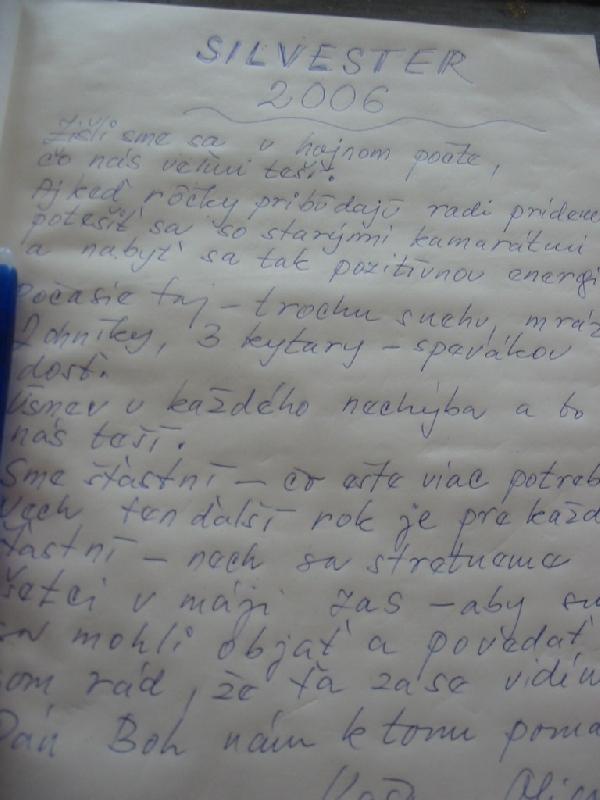 SILVESTER
2006
Zišli sme sa v hojnom počte,
čo nás veľmi teší.
Aj keď rôčky pribôdajú radi prídeme
potešiť sa so starými kamarátmi
a nabyť sa tak pozitívnou energi
počasie faj – trochu suchu, mráz
2 ohníky, 3 kytary – spevákov
dosť.
Úsmev u každého nechýba a to
nás teší.
Sme šťastní – čo ešte viac potreb
Nech ten ďalší rok je pre každ
šťastní – nech sa stretneme
šetci v máji zas – aby su
sa mohli objať a povedať
som rád, že ťa zase vidím
Pán Boh nám k tomu pomá